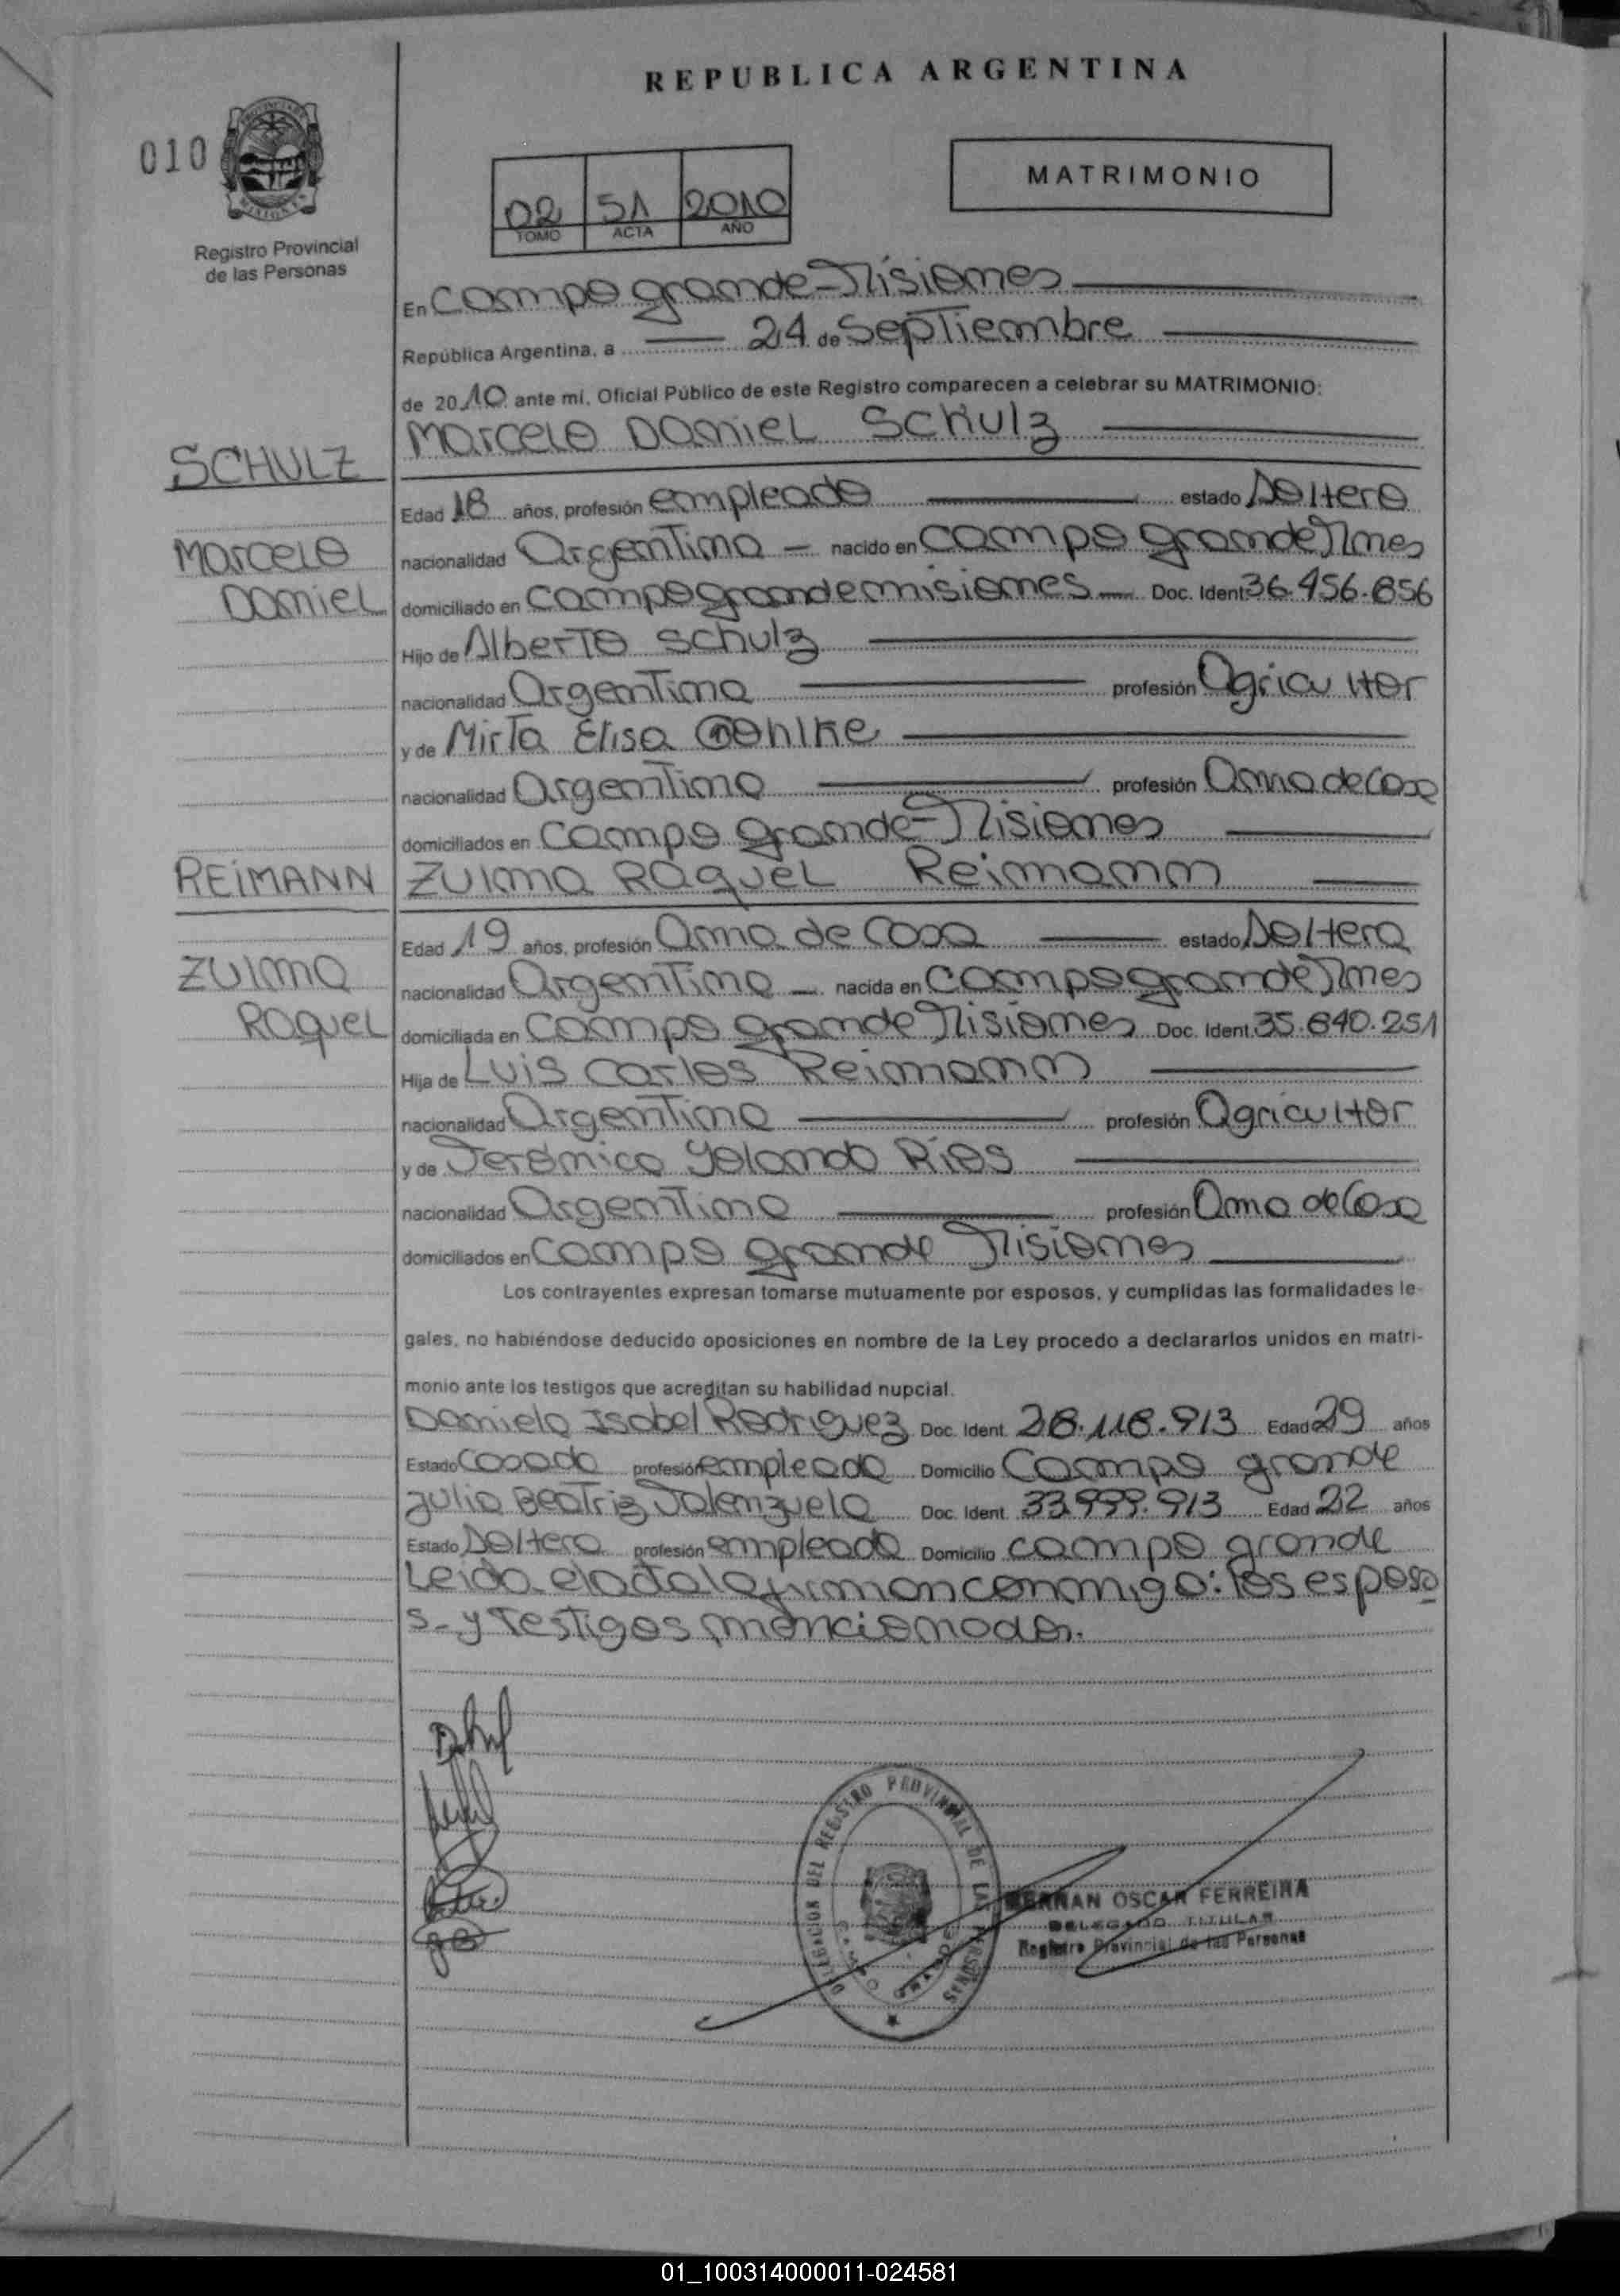 REPUBLICA ARGENTINA
010
MATRIMONIO
02 51 2010
TOMO ACTA AÑO
Registro Provincial
de las Personas
En Campo grande - Misiones
República Argentina, a 24 de Septiembre
de 2010 ante mi, Oficial Público de este Registro comparecen a celebrar su MATRIMONIO:
Marcelo Daniel Schulz
SCHULZ
Edad 18 años, profesión empleado estado Soltero
Marcelo
nacionalidad Argentina nacido en Campo grande Mnes
Daniel
domiciliado en Campo grande misiones Doc. Ident. 36.456.856
Hijo de Alberto Schulz
nacionalidad Argentina profesión Agricultor
y de Mirta Elisa
nacionalidad Argentina profesión Ama de Casa
domiciliados en Campo grande - Misiones
REIMANN
Zulma Raquel Reimann
Edad 19 años, profesión Ama de Casa estado Soltera
Zulma
nacionalidad Argentina nacida en Campo grande Mnes
Raquel
domiciliada en Campo grande Misiones Doc. Ident. 35.640.251
Hija de Luis Carlos Reimann
nacionalidad Argentina profesión Agricultor
y de Yolanda Rios
nacionalidad Argentina profesión Ama de Casa
domiciliados en Campo grande Misiones
Los contrayentes expresan tomarse mutuamente por esposos, y cumplidas las formalidades le-
gales, no habiéndose deducido oposiciones en nombre de la Ley procedo a declararlos unidos en matri-
monio ante los testigos que acreditan su habilidad nupcial.
Daniela Isabel Rodriguez Doc. Ident. 28.118.913 Edad 29 años
Estado Casada profesión empleada Domicilio Campo grande
Julia Beatriz Valenzuela Doc. Ident. 33.999.913 Edad 22 años
Estado Soltera profesión empleada Domicilio campo grande
Leida el acta la firman conmigo: los esposo
s- y testigos mencionados.
DELEGACION DEL REGISTRO PROVINCIAL DE LAS PERSONAS
HERNAN OSCAR FERREIRA
DELEGADO TITULAR
Registro Provincial de las Personas
01_100314000011-024581